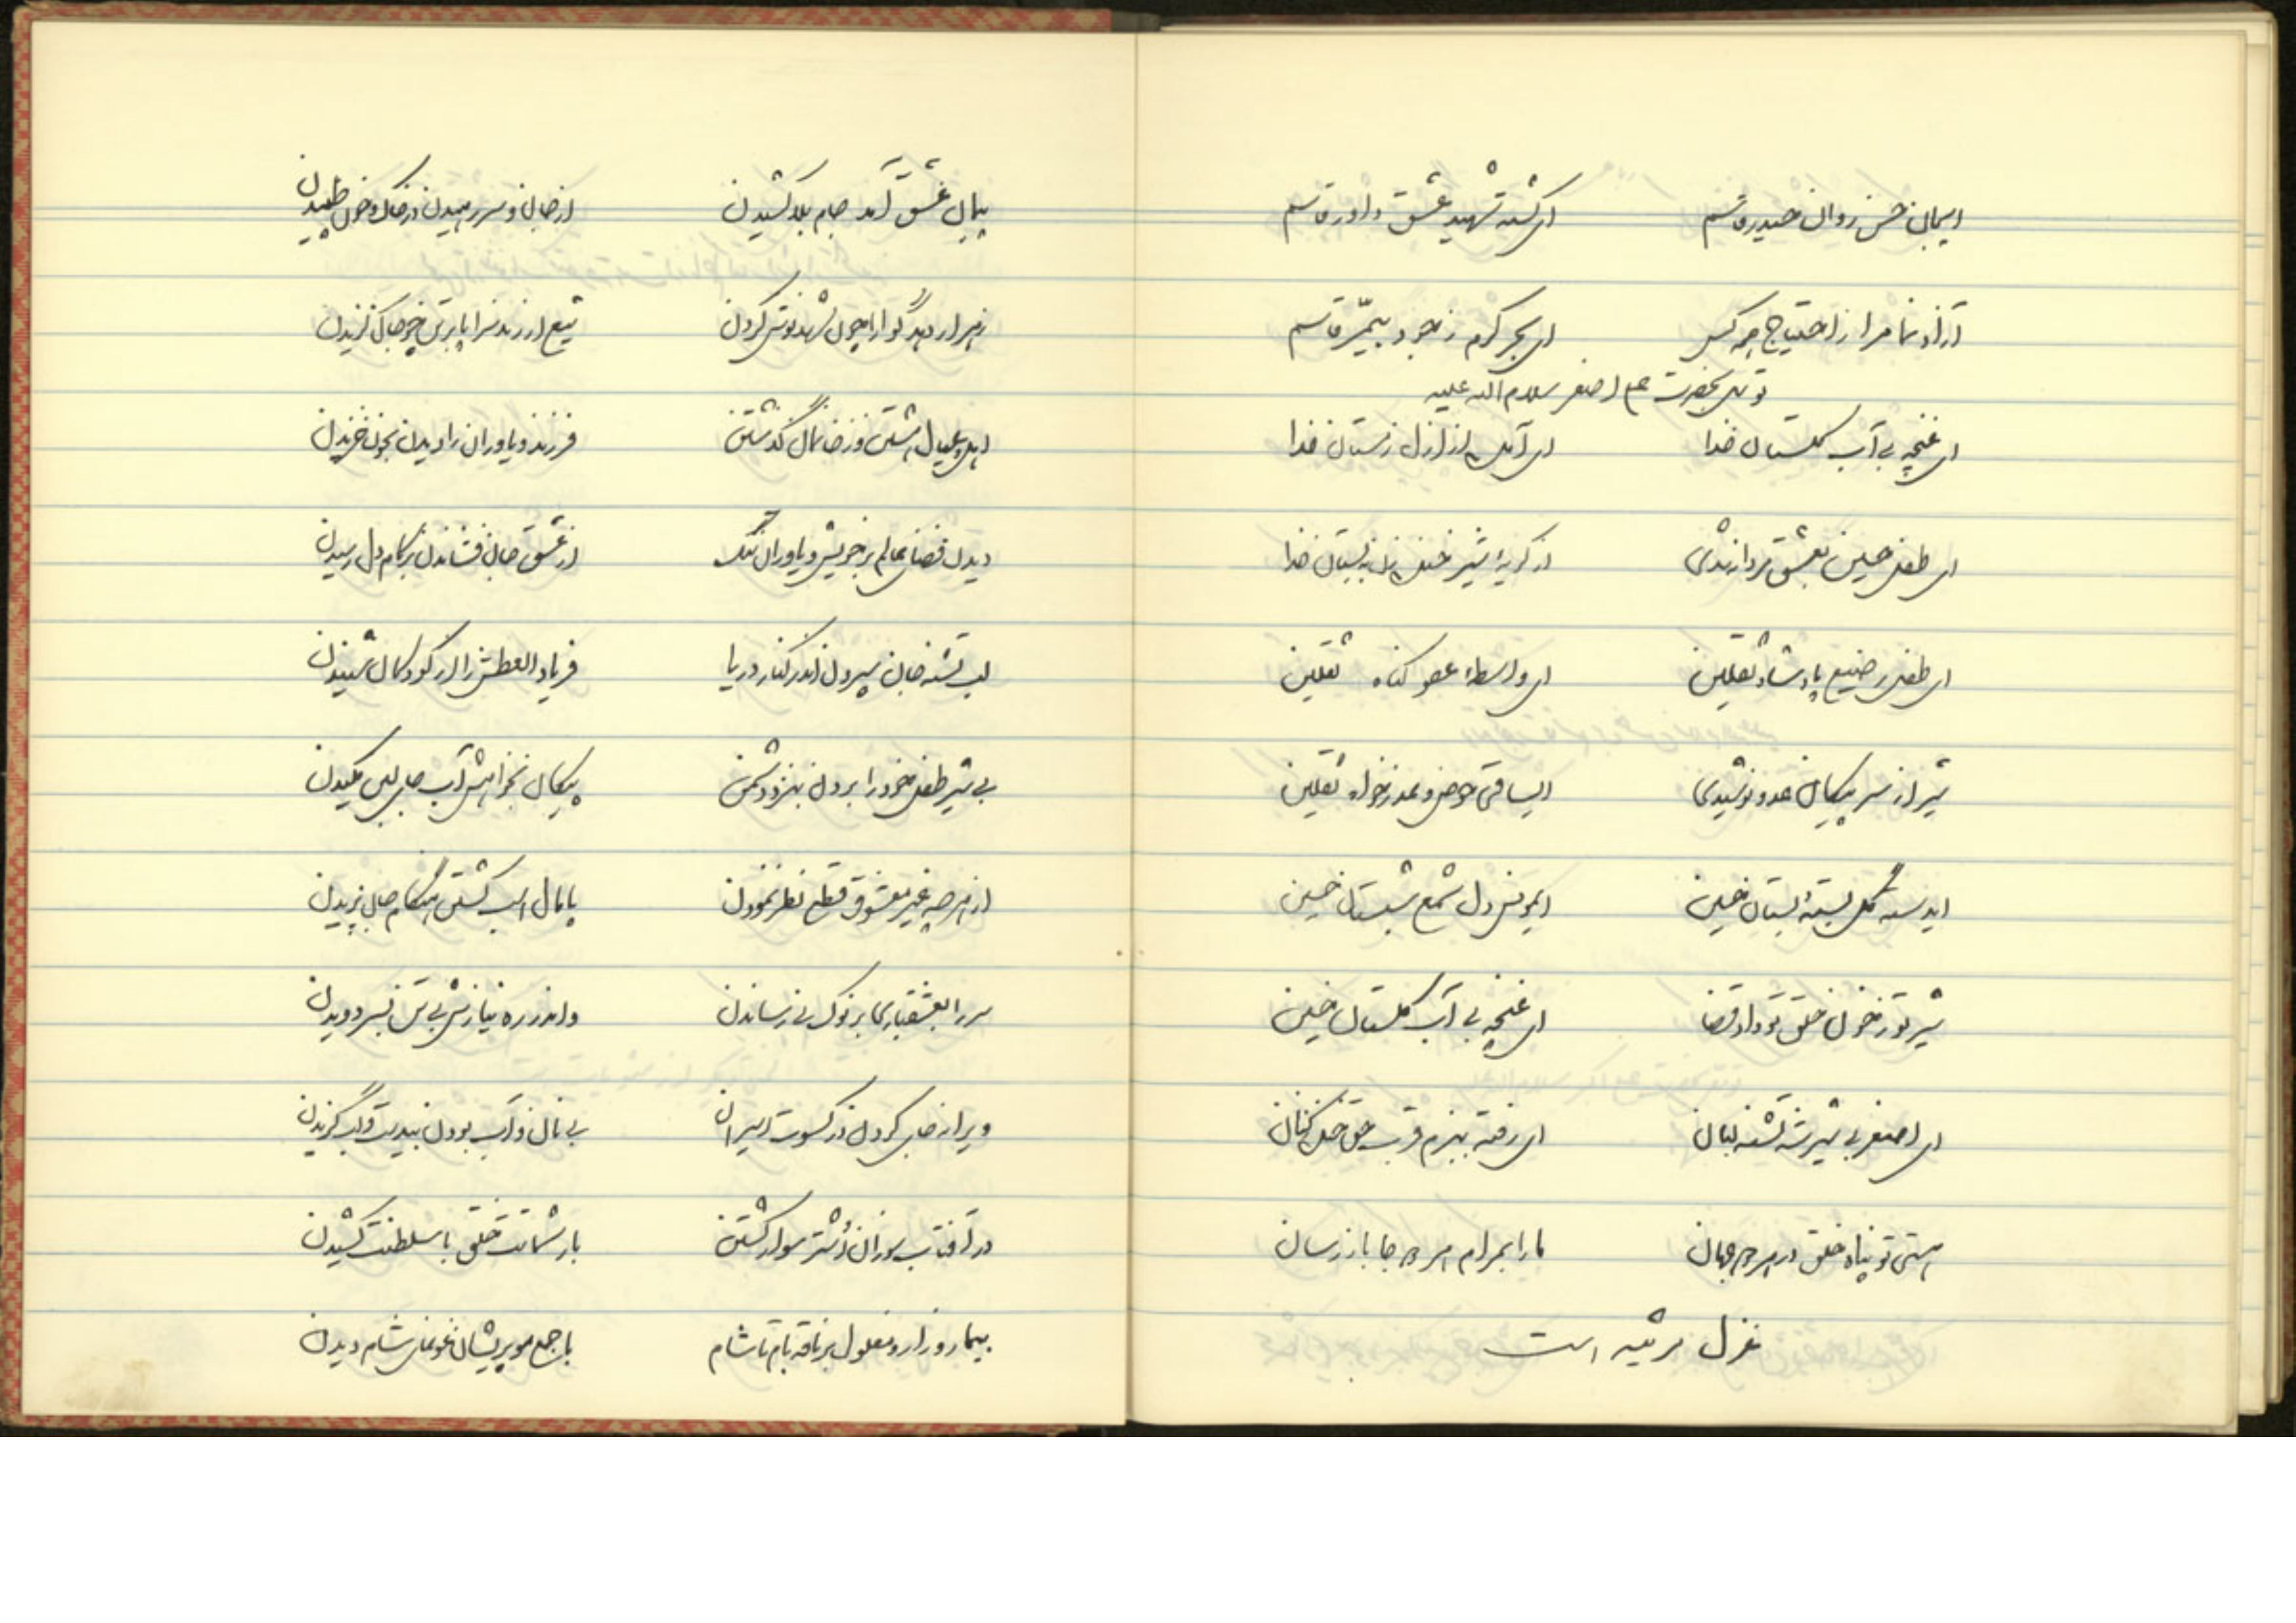 ایجان حسن روان حیدر قاسم ای کشته شهید عشق داور قاسم
آزاد نما مرا ز احتیاج همه کس ای بحر کرم ز جود بیمر قاسم
توسل بحضرت علی اصغر سلام الله علیه
ای غنچه بی آب گلستان خدا ای آمده از ازل زستان خدا
ای طفل حسین بعشق پرداز شدی از گریه شیر خنده زن بستان خدا
ای طفل رضیع پادشاه ثقلین ای واسطه عفو گناه ثقلین
شیر از سر پیکان عدو نوشیدی ایساقی حوض و عذرخواه ثقلین
ایدسته گل بسته بستان حسین ایمونس دل شمع شبستان حسین
شیر تو ز خون حلق تو داد قضا ای غنچه بی آب گلستان حسین
ای اصغر بی شیر شه تشنه لبان ای رفته ببزم قرب حق خنده کنان
هستی تو پناه خلق در هر دو جهان ما را بمرام هر دو جا باز رسان
غزل مرثیه است
پیمان عشق آمد جام بلا کشیدن از جان و سر رهیدن در خاک و خون طپیدن
زهر ار دهد گوارا چون شهد نوش کردن تیغ ار زند سراپا بر تن چو جان گزیدن
اهل و عیال هشتن وز خانمان گذشتن فرزند و یاوران را دیدن بخون خزیدن
دیدن فضای عالم بر خویش و یاوران تنگ از عشق جان فشاندن بر کام دل رسیدن
لب تشنه جان سپردن اندر کنار دریا فریاد العطش را از کودکان شنیدن
بی شیر طفل خود را بردن بنزد دشمن پیکان بخواهش آب جای لبن مکیدن
از هر چه غیر معشوق قطع نظر نمودن پامال اسب گشتن هنگام جان بریدن
سر را بعشقبازی بر نوک نی رساندن و اندر ره نیازش بی تن بسر دویدن
ویرانه جای کردن در کسوت اسیران بی نان و آب بودن بندیت و لب گزیدن
در آفتاب سوزان اشتر سوار گشتن بار شماتت خلق با سلطنت کشیدن
بیمار و زار و مغلول بر ناقه بام تا شام با جمع مو پریشان غوغای شام دیدن